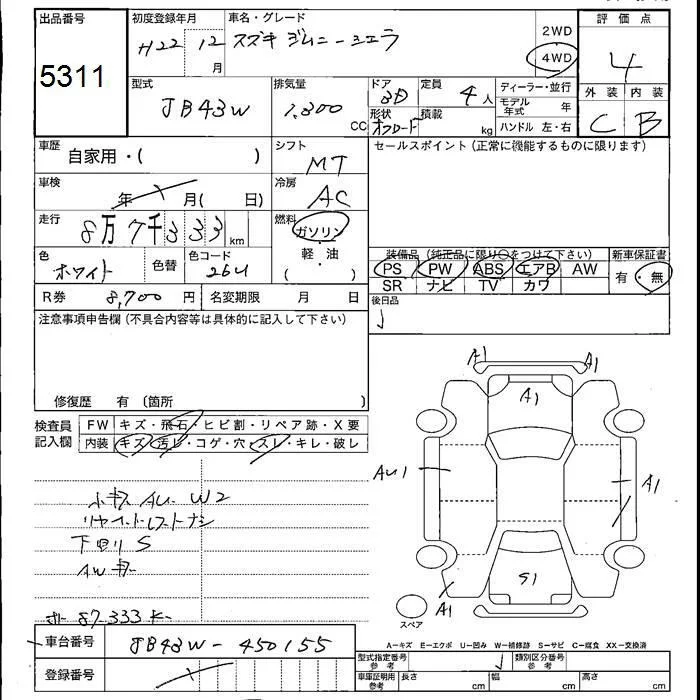 出品番号
5311
初度登録年月
H22 12月
車名・グレード
スズキ ジムニーシエラ
2WD
4WD
評価点
4
外装 内装
C B
型式
JB43W
排気量
1,300 CC
ドア
3D
形状
オフロード
定員
4人
積載
kg
ディーラー・並行
モデル年式 年
ハンドル 左・右
車歴
自家用・( )
シフト
MT
セールスポイント(正常に機能するものに限ります)
車検
年 月( 日)
冷房
AC
走行
8万7千333km
燃料
ガソリン
軽・油
( )
色
ホワイト
色替
色コード
26U
装備品(純正品に限り○をつけて下さい)
PS PW ABS エアB AW
SR ナビ TV カワ
新車保証書
有・無
R券 8,700円
名変期限 月 日
後日品
注意事項申告欄(不具合内容等は具体的に記入して下さい)
修復歴 有(箇所 )
検査員記入欄
FW キズ・飛石・ヒビ割・リペア跡・X要
内装 キズ・汚レ・コゲ・穴・スレ・キレ・破レ
AU W2
下回リ S
AW
87.333
A1
A1
A1
AU1
A1
S1
A1
スペア
車台番号
JB43W-450155
登録番号
A-キズ E-エクボ U-凹み W-補修跡 S-サビ C-腐食 XX-交換済
型式指定番号 参考
類別区分番号 参考
車庫証明用 参考
長さ cm
幅 cm
高さ cm